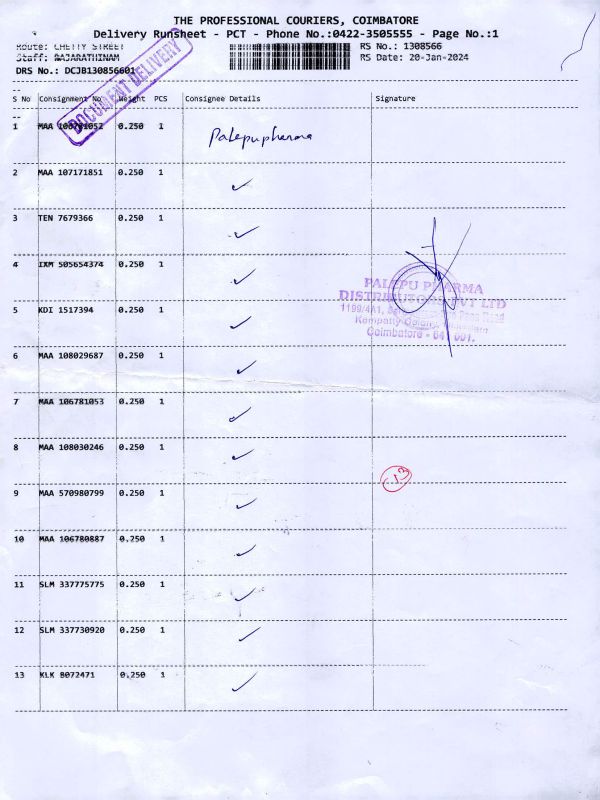 THE PROFESSIONAL COURIERS, COIMBATORE
Delivery Runsheet - PCT - Phone No.:0422-3505555 - Page No.:1
Route: CHETTY STREET
RS No.: 1308566
Staff: RAJARATHINAM
RS Date: 20-Jan-2024
DRS No.: DCJB130856601
DOCUMENT DELIVERY
S No Consignment No Weight PCS Consignee Details Signature
1 MAA 0.250 1 Palepupharma
2 MAA 107171851 0.250 1 ✓
3 TEN 7679366 0.250 1 ✓
4 IXM 505654374 0.250 1 ✓
PALEPU PHARMA
DISTRIBUTORS PVT LTD
1199/4A1, Road
Kempatty Colony,
Coimbatore - 641 001.
5 KDI 1517394 0.250 1 ✓
6 MAA 108029687 0.250 1 ✓
7 MAA 106781053 0.250 1 ✓
8 MAA 108030246 0.250 1 ✓
13
9 MAA 570980799 0.250 1 ✓
10 MAA 106780887 0.250 1 ✓
11 SLM 337775775 0.250 1 ✓
12 SLM 337730920 0.250 1 ✓
13 KLK 8072471 0.250 1 ✓